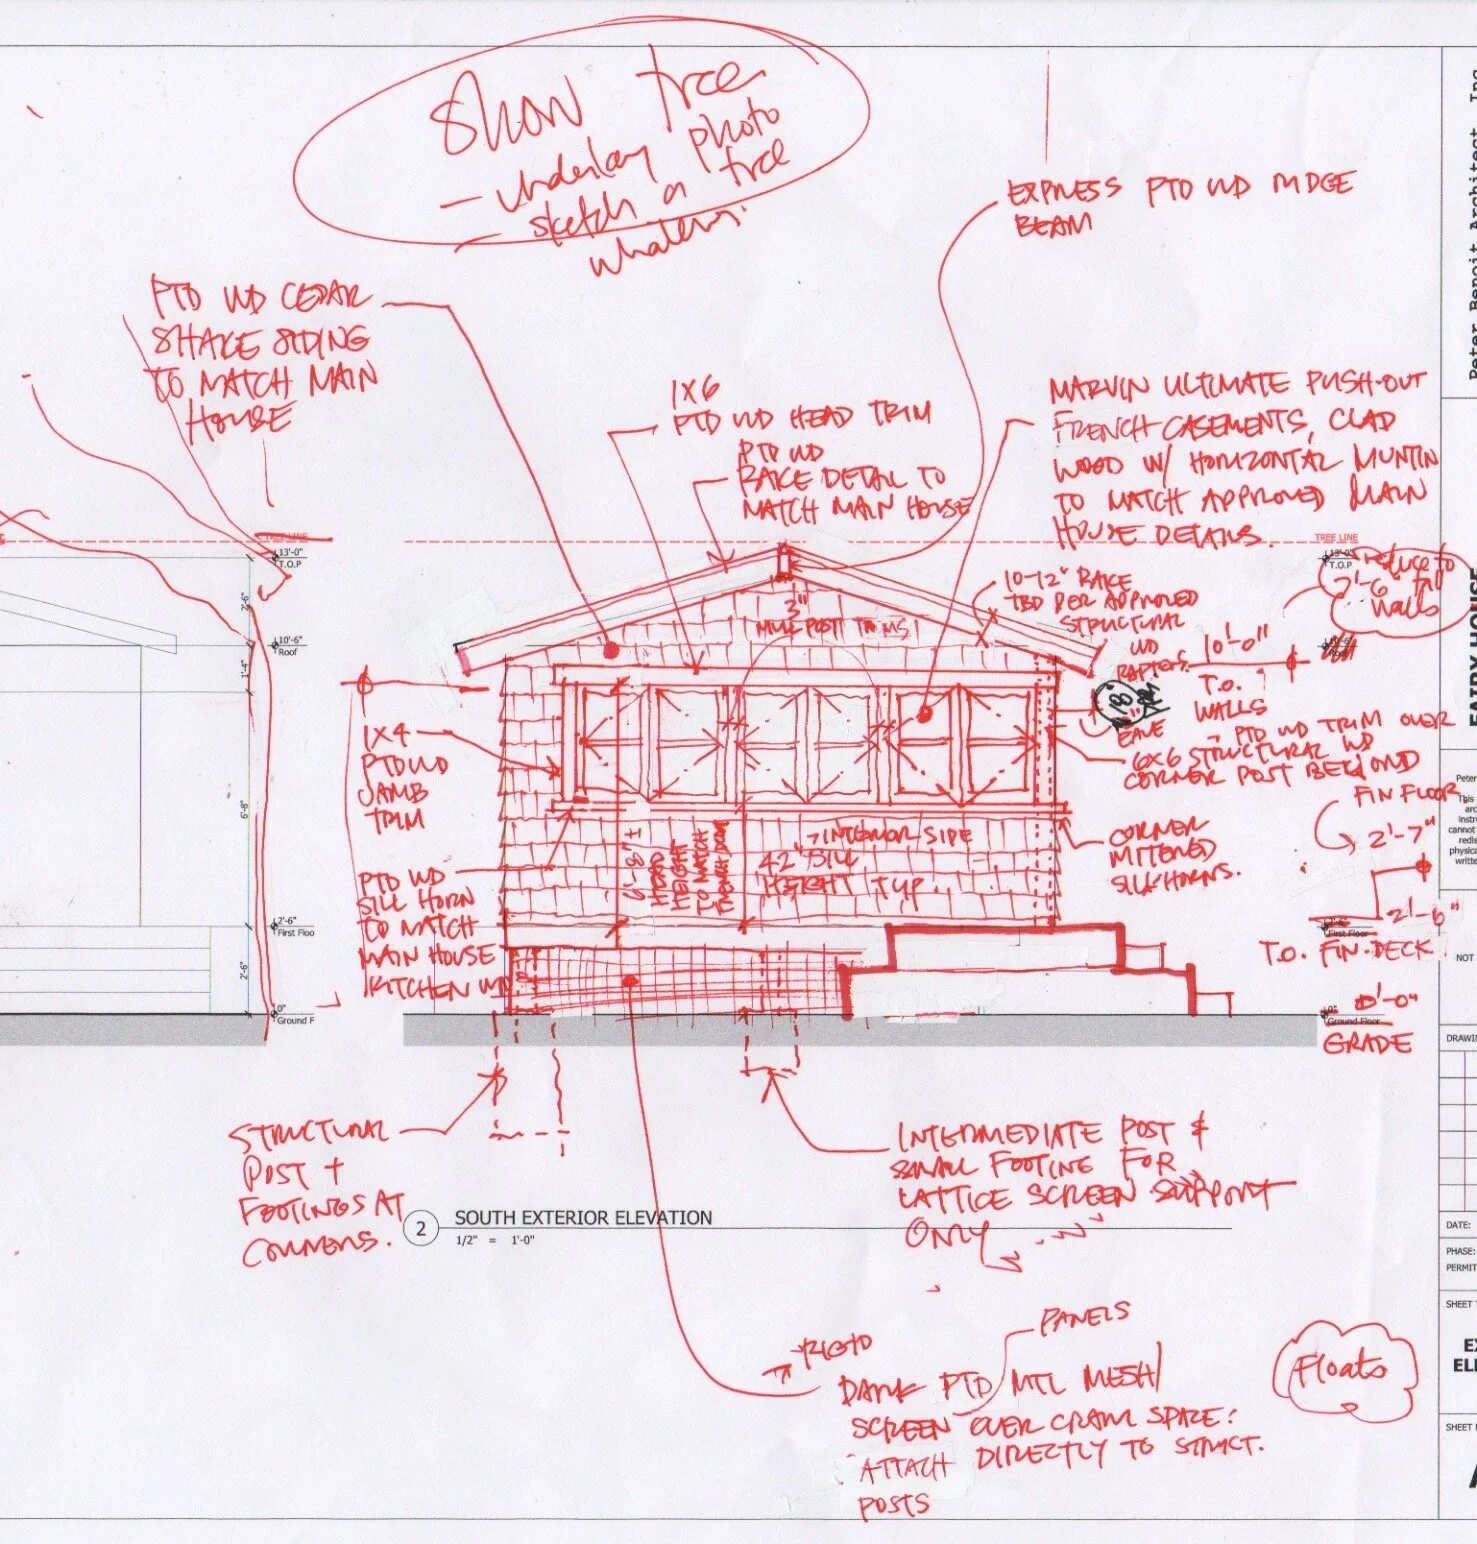 Show tree
— underlay photo
— sketch a tree
whatever.
EXPRESS PTD WD RIDGE
BEAM
PTD WD CEDAR
SHAKE SIDING
TO MATCH MAIN
HOUSE
1X6
PTD WD HEAD TRIM
PTD WD
RAKE DETAIL TO
MATCH MAIN HOUSE
MARVIN ULTIMATE PUSH-OUT
FRENCH CASEMENTS, CLAD
WOOD W/ HORIZONTAL MUNTIN
TO MATCH APPROVED MAIN
HOUSE DETAILS.
TREE LINE
13'-0"
T.O.P
TREE LINE
13'-0"
T.O.P
reduce to
7'-6" tall
walls
2'-6"
10'-6"
Roof
1'-4"
6'-8"
2'-6"
First Floo
2'-6"
0"
Ground F
10-12" RAKE
TBD PER APPROVED
STRUCTURAL
WD
RAFTERS.
3"
MULL POST TRIMS
10'-0"
T.O.
WALLS
18"
EAVE
- PTD WD TRIM OVER
6X6 STRUCTURAL WD
CORNER POST BEYOND
1X4
PTD WD
JAMB
TRIM
FIN FLOOR
2'-7"
CORNER
MITERED
SILL HORNS.
6'-8" ±
HEAD
HEIGHT
TO MATCH
INTERIOR SIDE
42" SILL
HEIGHT TYP.
PTD WD
SILL HORN
TO MATCH
MAIN HOUSE
KITCHEN WD.
2'-6"
First Floor
T.O. FIN. DECK
0'-0"
0"
Ground Floor
GRADE
STRUCTURAL
POST +
FOOTINGS AT
CORNERS.
INTERMEDIATE POST &
SMALL FOOTING FOR
LATTICE SCREEN SUPPORT
ONLY
2
SOUTH EXTERIOR ELEVATION
1/2" = 1'-0"
PANELS
DARK PTD MTL MESH/
SCREEN OVER CRAWL SPACE:
ATTACH DIRECTLY TO STRUCT.
POSTS
Floats
Peter Benoit Architect, Inc
FAIRY HOUSE
Peter
This
arc
instru
cannot
redis
physica
writte
NOT
DRAWIN
DATE:
PHASE:
PERMIT
SHEET T
EX
ELE
SHEET
A